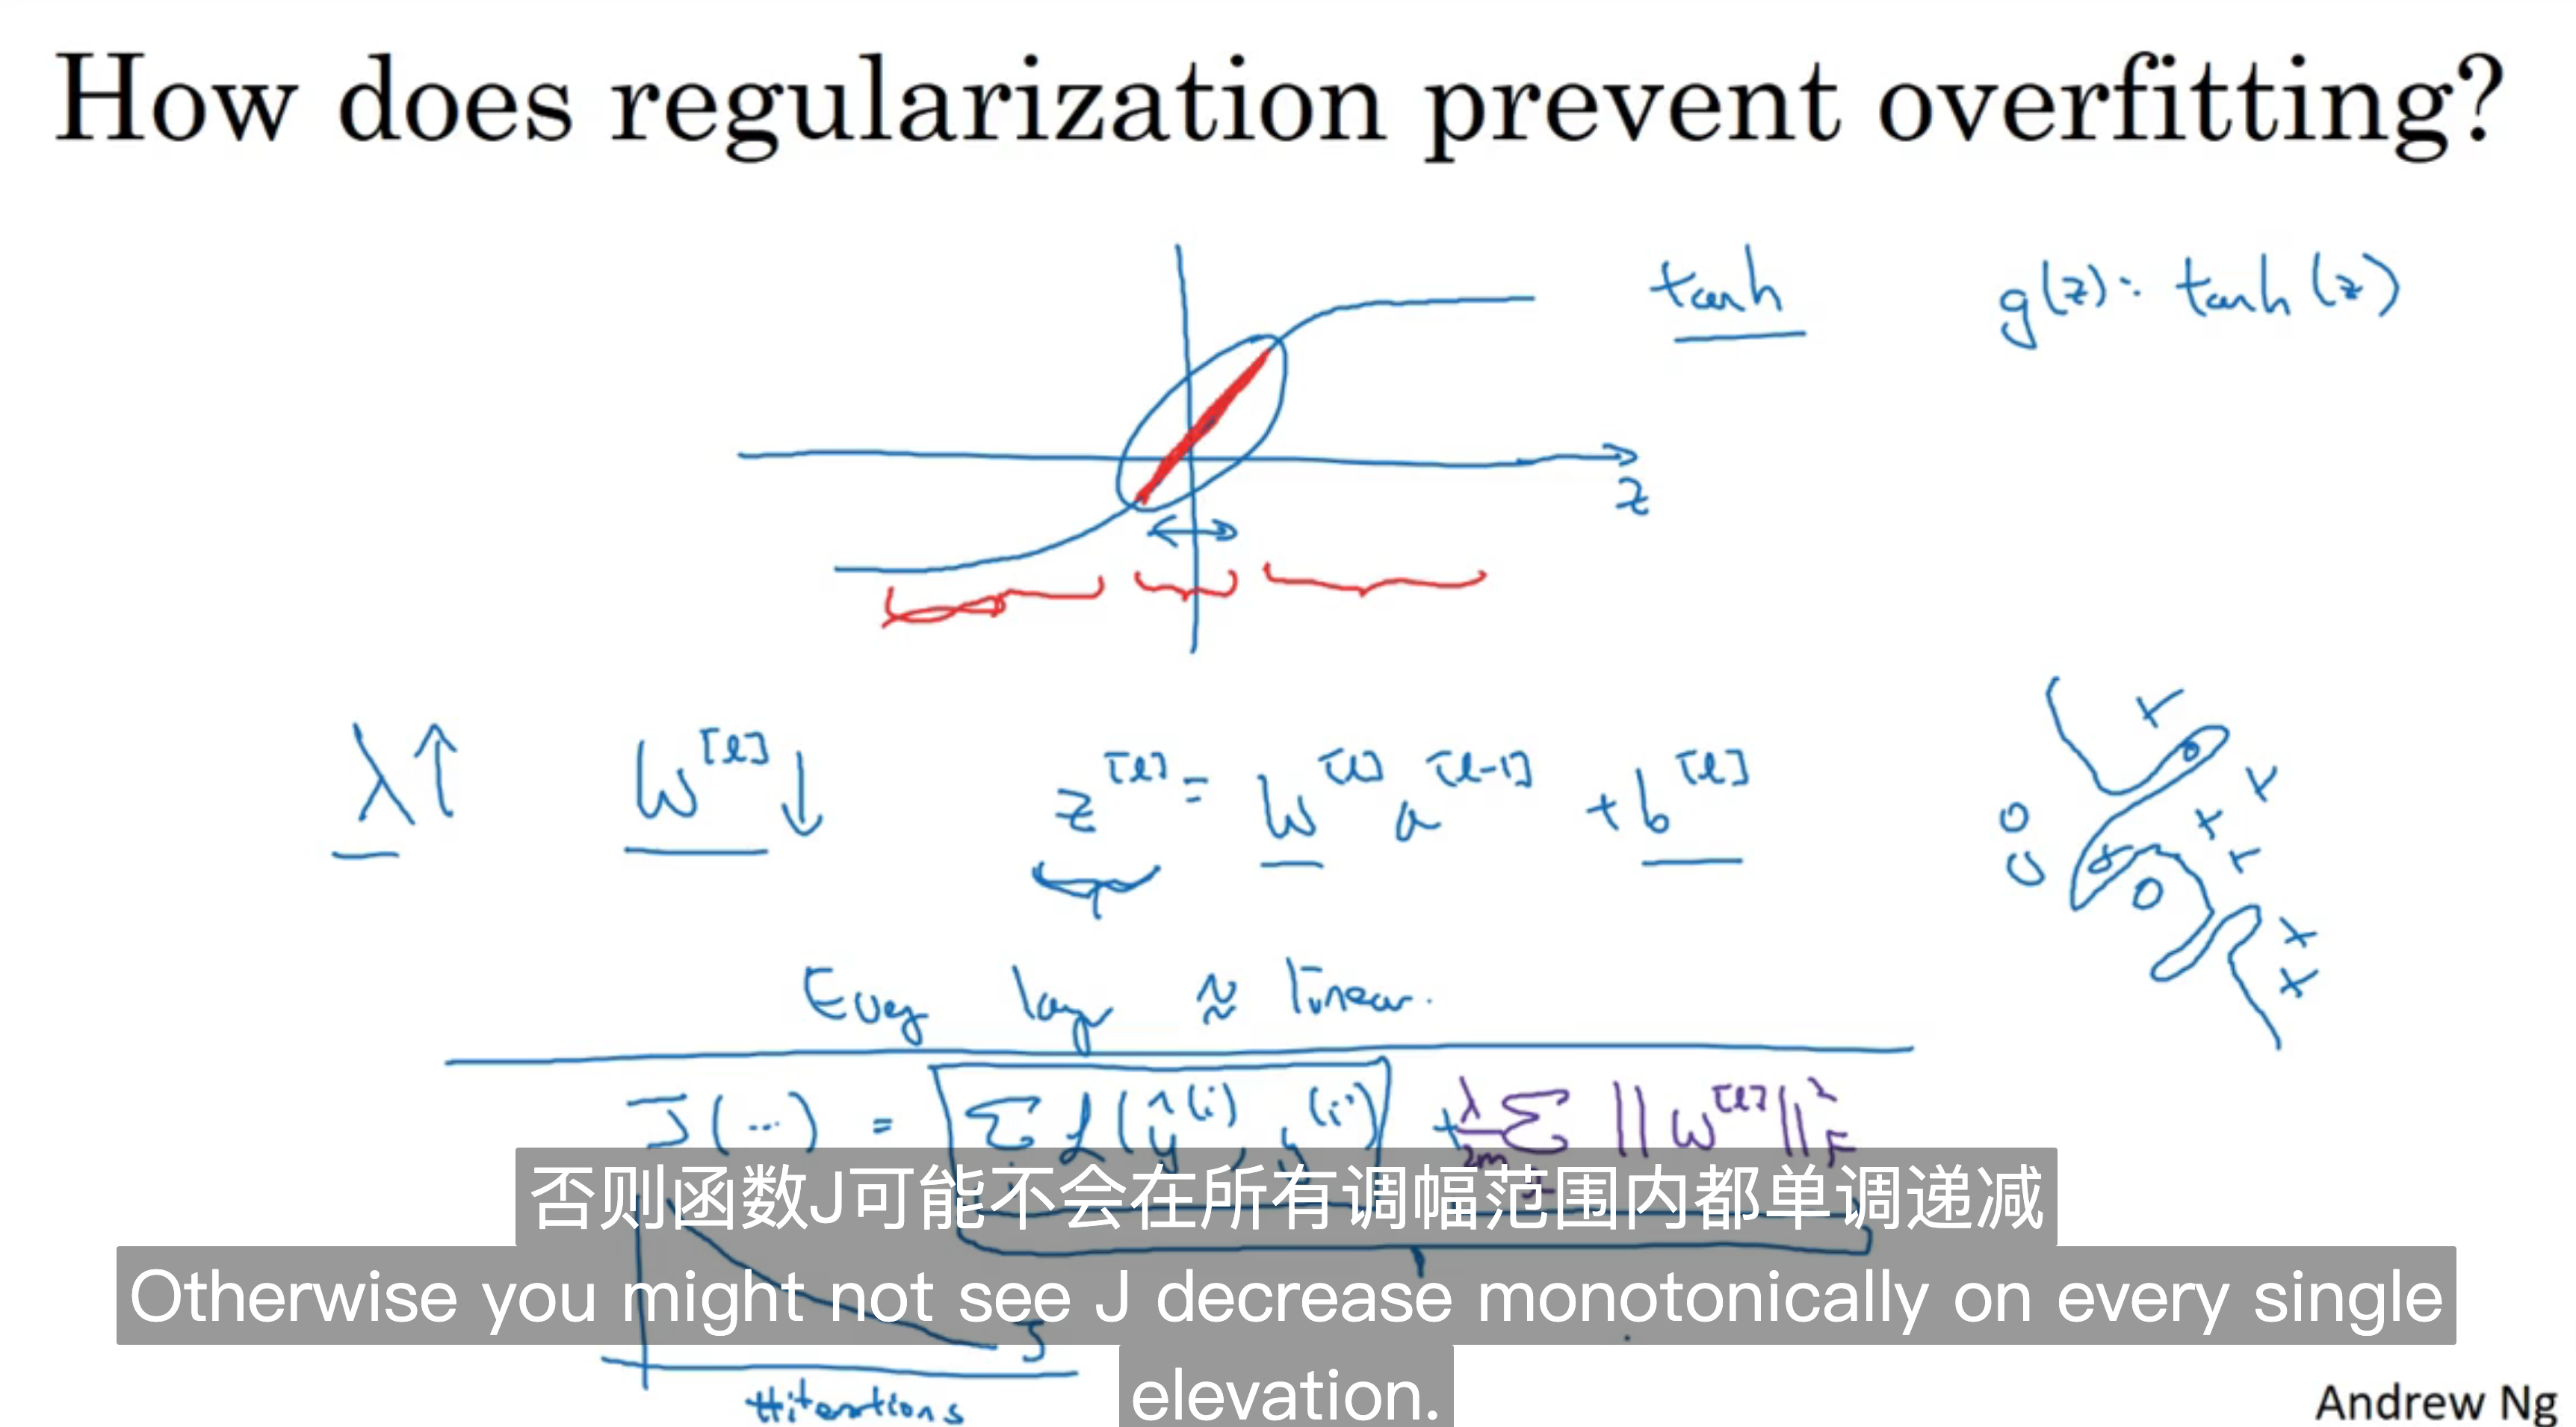 How does regularization prevent overfitting?
tanh
g(z) = tanh(z)
z
λ↑ W[l]↓ z[l] = W[l] a[l-1] + b[l]
Every layer ≈ linear.
J(...) = Σ L(ŷ(i), y(i)) + λ/2m Σ ||W[l]||²F
否则函数J可能不会在所有调幅范围内都单调递减
Otherwise you might not see J decrease monotonically on every single
elevation.
J
#iterations
Andrew Ng